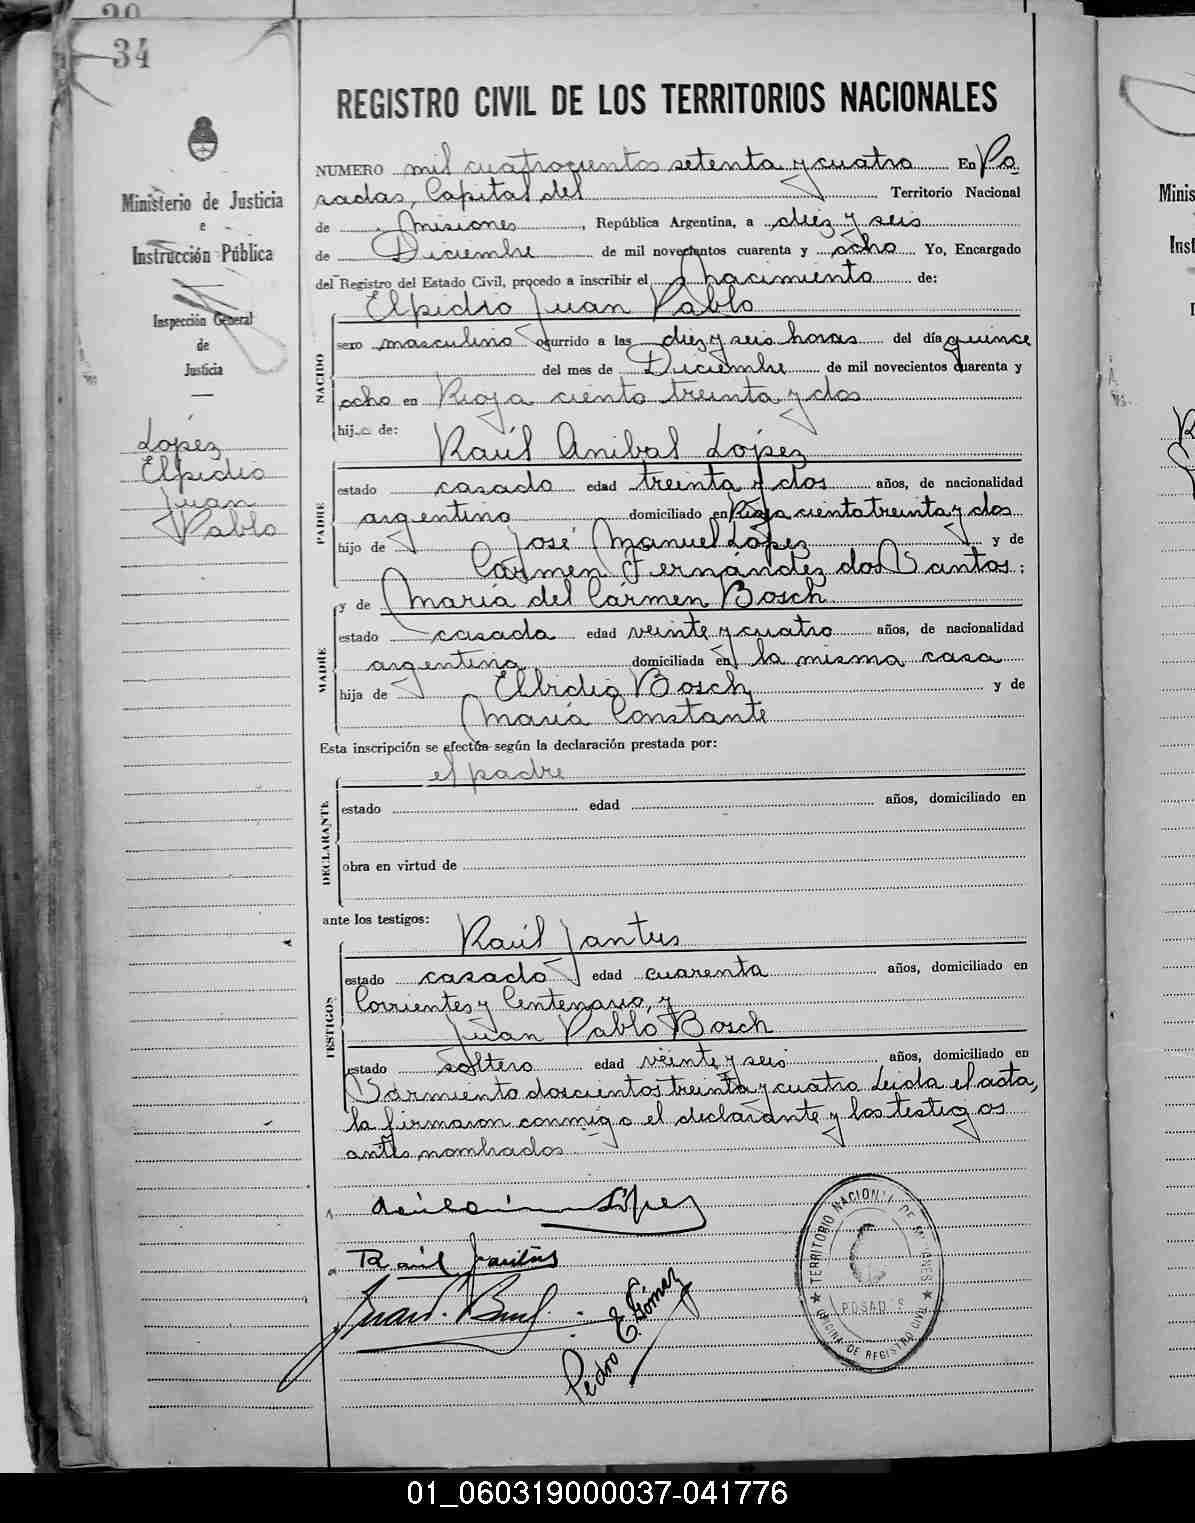 34
Ministerio de Justicia
e
Instrucción Pública
Inspección General
de
Justicia
López
Elpidio
Juan
Pablo
REGISTRO CIVIL DE LOS TERRITORIOS NACIONALES
NUMERO mil cuatrocientos setenta y cuatro En Po
sadas, Capital del Territorio Nacional
de Misiones, República Argentina, a diez y seis
de Diciembre de mil novecientos cuarenta y ocho Yo, Encargado
del Registro del Estado Civil, procedo a inscribir el nacimiento de:
Elpidio Juan Pablo
NACIDO
sexo masculino ocurrido a las diez y seis horas del día quince
del mes de Diciembre de mil novecientos cuarenta y
ocho en Rioja ciento treinta y dos
hijo de:
Raúl Anibal López
PADRE
estado casado edad treinta y dos años, de nacionalidad
argentino domiciliado en Rioja ciento treinta y dos
hijo de José Manuel López y de
Cármen Fernández dos Santos;
y de María del Cármen Bosch
MADRE
estado casada edad veinte y cuatro años, de nacionalidad
argentina domiciliada en la misma casa
hija de Elpidio Bosch y de
María Constante
Esta inscripción se efectúa según la declaración prestada por:
el padre
DECLARANTE
estado edad años, domiciliado en
obra en virtud de
ante los testigos:
Raúl Jantus
TESTIGOS
estado casado edad cuarenta años, domiciliado en
Corrientes y Centenario, y
Juan Pablo Bosch
estado soltero edad veinte y seis años, domiciliado en
Sarmiento doscientos treinta y cuatro Leida el acta,
la firmaron conmigo el declarante y los testigos
antes nombrados
López
Raúl Jantus
Juan P. Bosch
Pedro E. Gómez
TERRITORIO NACIONAL DE MISIONES
POSADAS
OFICINA DE REGISTRO CIVIL
Minis
Inst
01_060319000037-041776